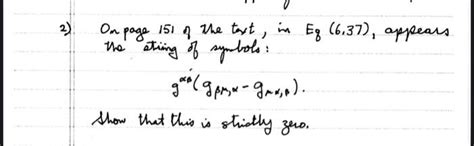 2) On page 151 of the text, in Eq (6.37), appears
the string of symbols:
g^{αβ}(g_{βμ,α} - g_{μα,β}).
Show that this is strictly zero.